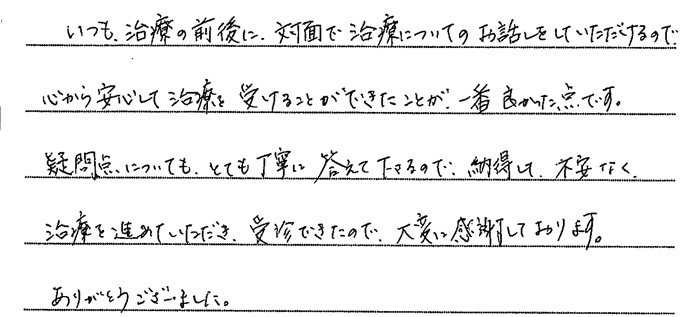 いつも、治療の前後に、対面で治療についてのお話しをしていただけるので、
心から安心して治療を受けることができたことが、一番良かった点です。
疑問点についても、とても丁寧に答えて下さるので、納得して、不安なく、
治療を進めていただき、受診できたので、大変に感謝しております。
ありがとうございました。